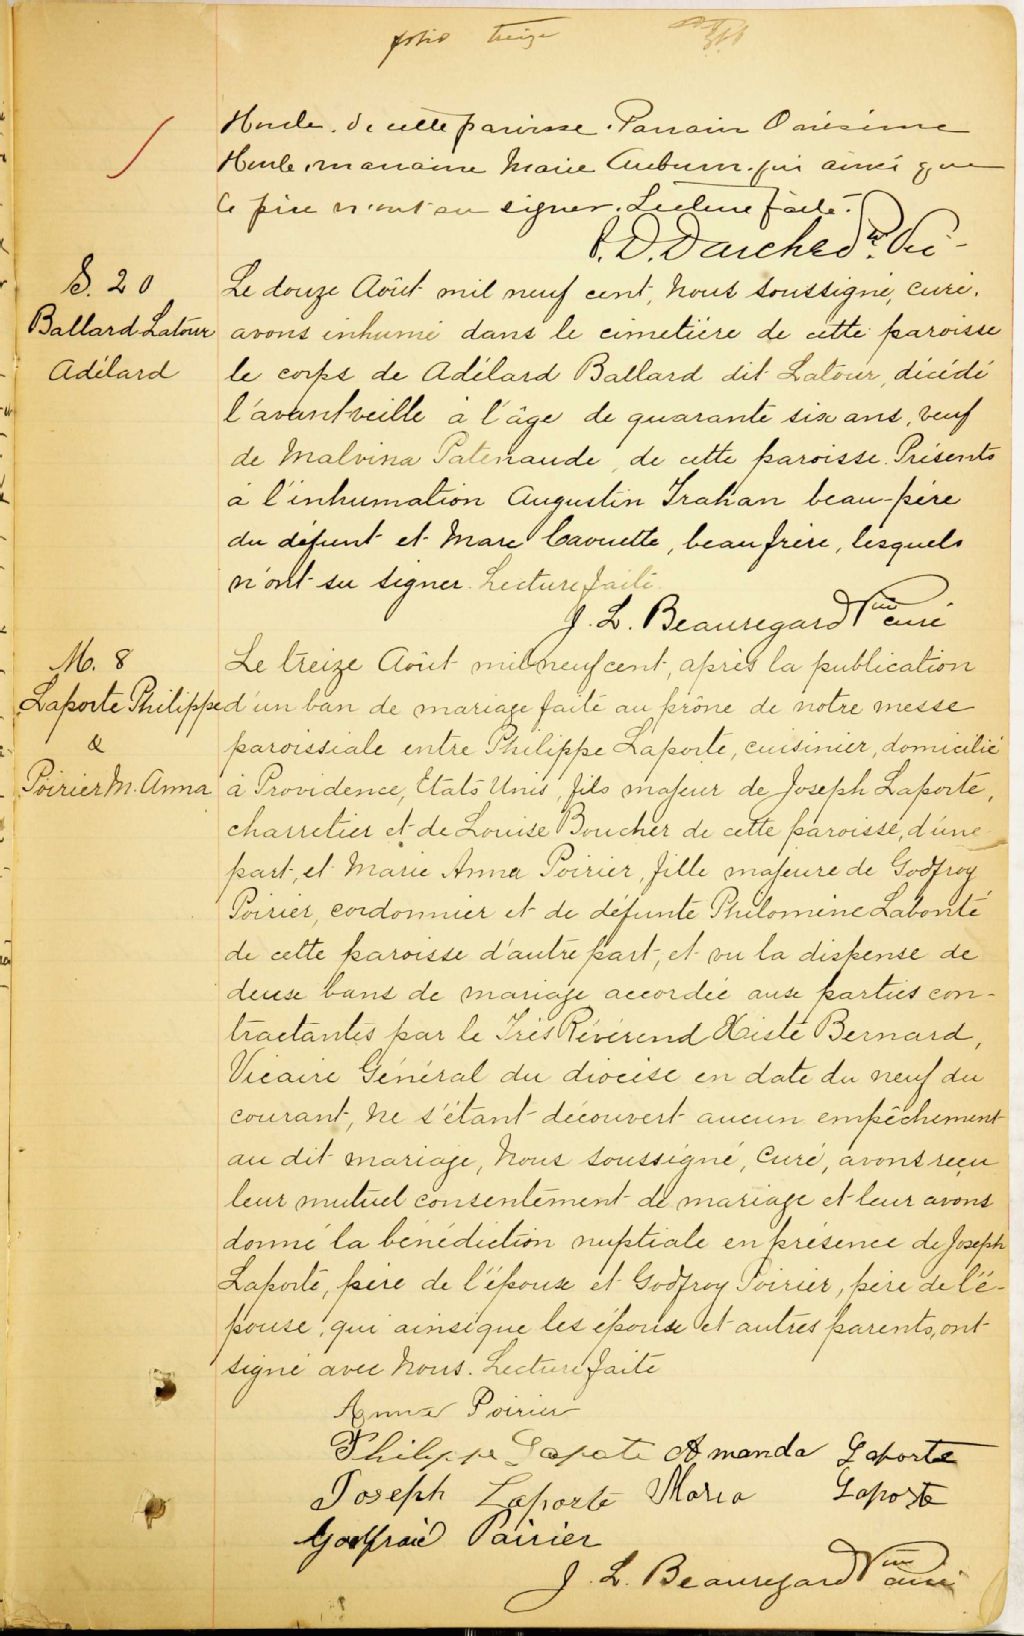 folio treize
Houle, de cette paroisse. Parrain Onésime
Houle, marraine Marie Auburn, qui ainsi que
le père n'ont su signer. Lecture faite.
P. D. Darche Ptre. Vic
S. 20
Ballard-Latour
Adélard
Le douze Août mil neuf cent, Nous soussigné, curé,
avons inhumé dans le cimetière de cette paroisse
le corps de Adélard Ballard dit Latour, décédé
l'avant-veille à l'âge de quarante six ans, veuf
de Malvina Patenaude, de cette paroisse. Présents
à l'inhumation Augustin Trahan beau-père
du défunt et Marc Caouette, beau frère, lesquels
n'ont su signer. Lecture faite
J. L. Beauregard Ptre curé
M. 8
Laporte Philippe
&
Poirier M. Anna
Le treize Août mil neuf cent, après la publication
d'un ban de mariage faite au prône de notre messe
paroissiale entre Philippe Laporte, cuisinier, domicilié
à Providence, Etats Unis, fils majeur de Joseph Laporte,
charretier et de Louise Boucher de cette paroisse, d'une
part, et Marie Anna Poirier, fille majeure de Godfroy
Poirier, cordonnier et de défunte Philomène Labonté
de cette paroisse d'autre part, et vu la dispense de
deux bans de mariage accordée aux parties con-
tractantes par le Très Révérend Xiste Bernard,
Vicaire Général du diocèse en date du neuf du
courant, Ne s'étant découvert aucun empêchement
au dit mariage, Nous soussigné, Curé, avons reçu
leur mutuel consentement de mariage et leur avons
donné la bénédiction nuptiale en présence de Joseph
Laporte, père de l'époux et Godfroy Poirier, père de l'é-
pouse, qui ainsi que les époux et autres parents, ont
signé avec Nous. Lecture faite
Anna Poirier
Philippe Lapote Amanda Laporte
Joseph Laporte Maria Laporte
Godfraie Pairier
J. L. Beauregard Ptre curé